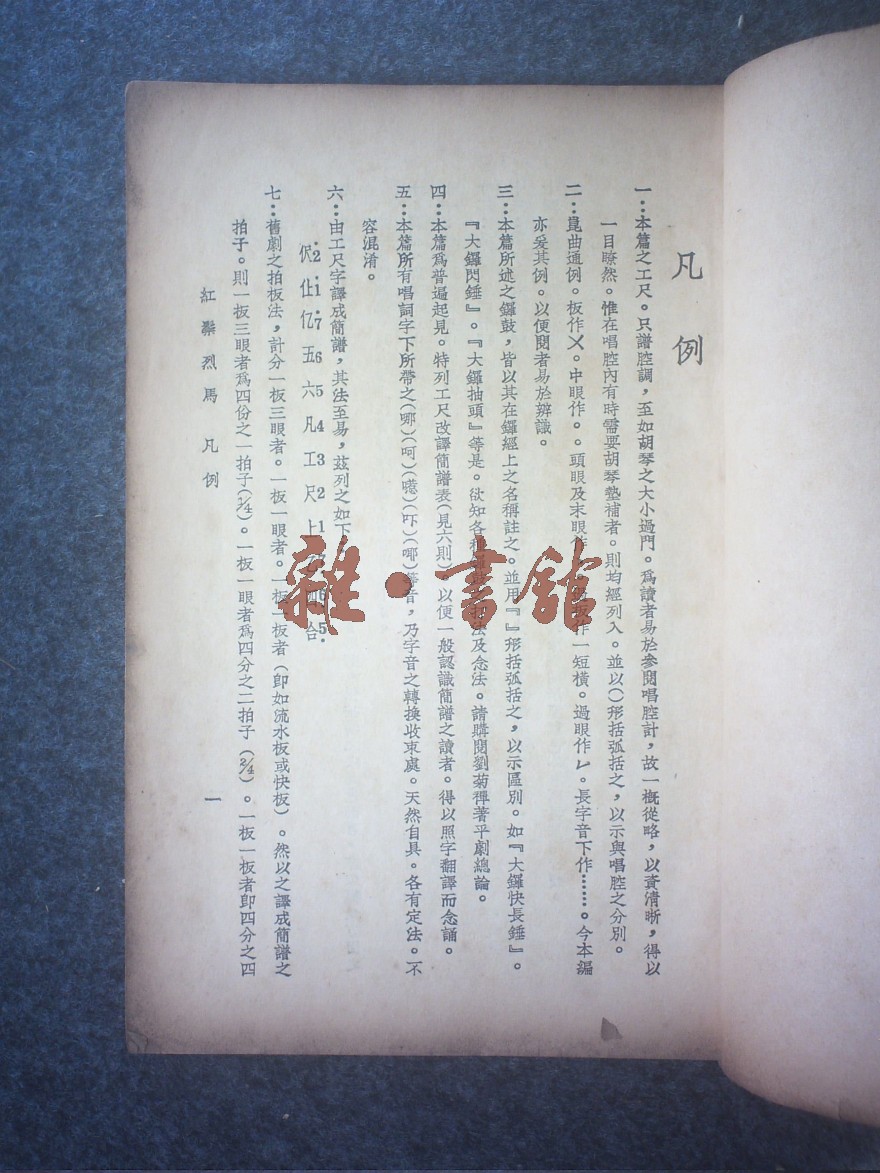 凡例
一：本篇之工尺。只譜腔調，至如胡琴之大小過門。爲讀者易於參閱唱腔計，故一概從略，以資清晰，得以
一目瞭然。惟在唱腔內有時需要胡琴墊補者。則均經列入。並以（）形括弧括之，以示與唱腔之分別。
二：崑曲通例。板作㐅。中眼作。。頭眼及末眼作板作一短橫。過眼作㇄。長字音下作……。今本編
亦爰其例。以便閱者易於辨識。
三：本篇所述之鑼鼓，皆以其在鑼經上之名稱註之。並用『』形括弧括之，以示區別。如『大鑼快長錘』。
『大鑼閃錘』。『大鑼抽頭』等是。欲知各種法及念法。請購閱劉菊禪著平劇總論。
四：本篇爲普遍起見。特列工尺改譯簡譜表（見六則）以便一般認識簡譜之讀者。得以照字翻譯而念誦。
五：本篇所有唱詞字下所帶之（哪）（呵）（噫）（吓）（哪）等音，乃字音之轉換收束處。天然自具。各有定法。不
容混淆。
六：由工尺字譯成簡譜，其法至易，茲列之如下
伬2̇ 仩1̇ 亿7 五6 六5 凡4 工3 尺2 上1 合5̣
七：舊劇之拍板法，計分一板三眼者。一板一眼者。一板一板者（卽如流水板或快板）。然以之譯成簡譜之
拍子。則一板三眼者爲四份之一拍子（¼）。一板一眼者爲四分之二拍子（2/4）。一板一板者卽四分之四
紅鬃烈馬 凡例
一
雜·書館